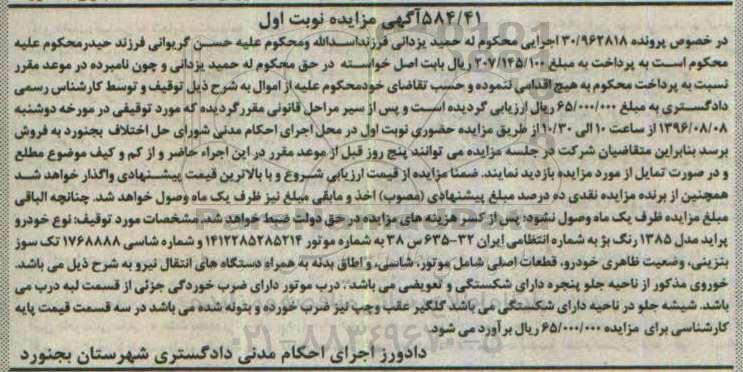 ۵۸۴/۴۱آگهی مزایده نوبت اول
در خصوص پرونده ۳۰/۹۶۲۸۱۸ اجرایی محکوم له حمید یزدانی فرزنداسدالله ومحکوم علیه حسن گریوانی فرزند حیدرمحکوم علیه
محکوم است به پرداخت به مبلغ ۲۰۷/۱۴۵/۱۰۰ ریال بابت اصل خواسته در حق محکوم له حمید یزدانی و چون نامبرده در موعد مقرر
نسبت به پرداخت محکوم به هیچ اقدامی ننموده و حسب تقاضای خودمحکوم علیه از اموال به شرح ذیل توقیف و توسط کارشناس رسمی
دادگستری به مبلغ ۶۵/۰۰۰/۰۰۰ ریال ارزیابی گردیده است و پس از سیر مراحل قانونی مقررگردیده که مورد توقیفی در مورخه دوشنبه
۱۳۹۶/۰۸/۰۸ از ساعت ۱۰ الی ۱۰/۳۰ از طریق مزایده حضوری نوبت اول در محل اجرای احکام مدنی شورای حل اختلاف بجنورد به فروش
برسد بنابراین متقاضیان شرکت در جلسه مزایده می توانند پنج روز قبل از موعد مقرر در این اجراء حاضر و از کم و کیف موضوع مطلع
و در صورت تمایل از مورد مزایده بازدید نمایند. ضمنا مزایده از قیمت ارزیابی شروع و با بالاترین قیمت پیشنهادی واگذار خواهد شد
همچنین از برنده مزایده نقدی ده درصد مبلغ پیشنهادی (مصوب) اخذ و مابقی مبلغ نیز ظرف یک ماه وصول خواهد شد. چنانچه الباقی
مبلغ مزایده ظرف یک ماه وصول نشود؛ پس از کسر هزینه های مزایده در حق دولت ضبط خواهد شد. مشخصات مورد توقیف: نوع خودرو
پراید مدل ۱۳۸۵ رنگ بژ به شماره انتظامی ایران ۳۲-۶۳۵ س ۳۸ به شماره موتور ۱۴۱۲۲۸۵۲۸۵۲۱۴ و شماره شاسی ۱۷۶۸۸۸۸ تک سوز
بنزینی، وضعیت ظاهری خودرو، قطعات اصلی شامل موتور، شاسی، و اطاق بدنه به همراه دستگاه های انتقال نیرو به شرح ذیل می باشد.
خوروی مذکور از ناحیه جلو پنجره دارای شکستگی و تعویضی می باشد. درب موتور دارای ضرب خوردگی جزئی از قسمت لبه درب می
باشد. شیشه جلو در ناحیه دارای شکستگی می باشد گلگیر عقب وچپ نیز ضرب خورده و بتونه شده می باشد در سه قسمت قیمت پایه
کارشناسی برای مزایده ۶۵/۰۰۰/۰۰۰ ریال برآورد می شود.
دادورز اجرای احکام مدنی دادگستری شهرستان بجنورد
۰۲۱-۸۸۳۴۹۶۷۰-۵